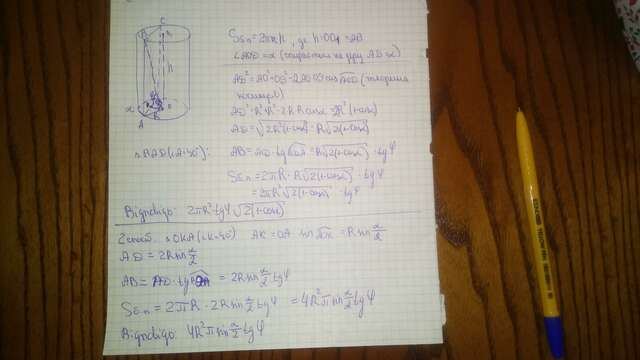 Sб.п = 2πRh, де h = OO₁ = AB
∠AOD = α (спирається на дугу AD = α)
AD² = AO² + OD² - 2AO·OD cos∠AOD (теорема
косинусів)
AD² = R² + R² - 2R·R cosα = 2R²(1-cosα)
AD = √2R²(1-cosα) = R√2(1-cosα)
△BAD (∠A = 90°):
AB = AD · tg∠BDA = R√2(1-cosα) · tgφ
Sб.п = 2πR · R√2(1-cosα) · tgφ
= 2πR²√2(1-cosα) · tgφ
Відповідь: 2πR² tgφ √2(1-cosα)
2 спосіб. △OKA (∠K = 90°) AK = OA · sin = R sin α/2
AD = 2R sin α/2
AB = AD · tg = 2R sin α/2 tgφ
Sб.п = 2πR · 2R sin α/2 tgφ = 4R²π sin α/2 tgφ
Відповідь: 4R²π sin α/2 tgφ